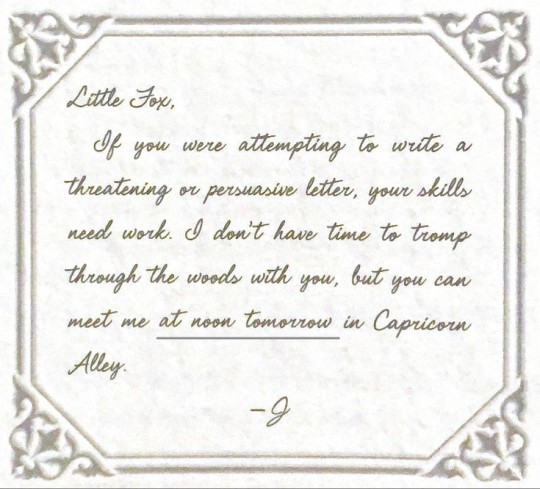 Little Fox,
If you were attempting to write a
threatening or persuasive letter, your skills
need work. I don't have time to tromp
through the woods with you, but you can
meet me at noon tomorrow in Capricorn
Alley.
–J